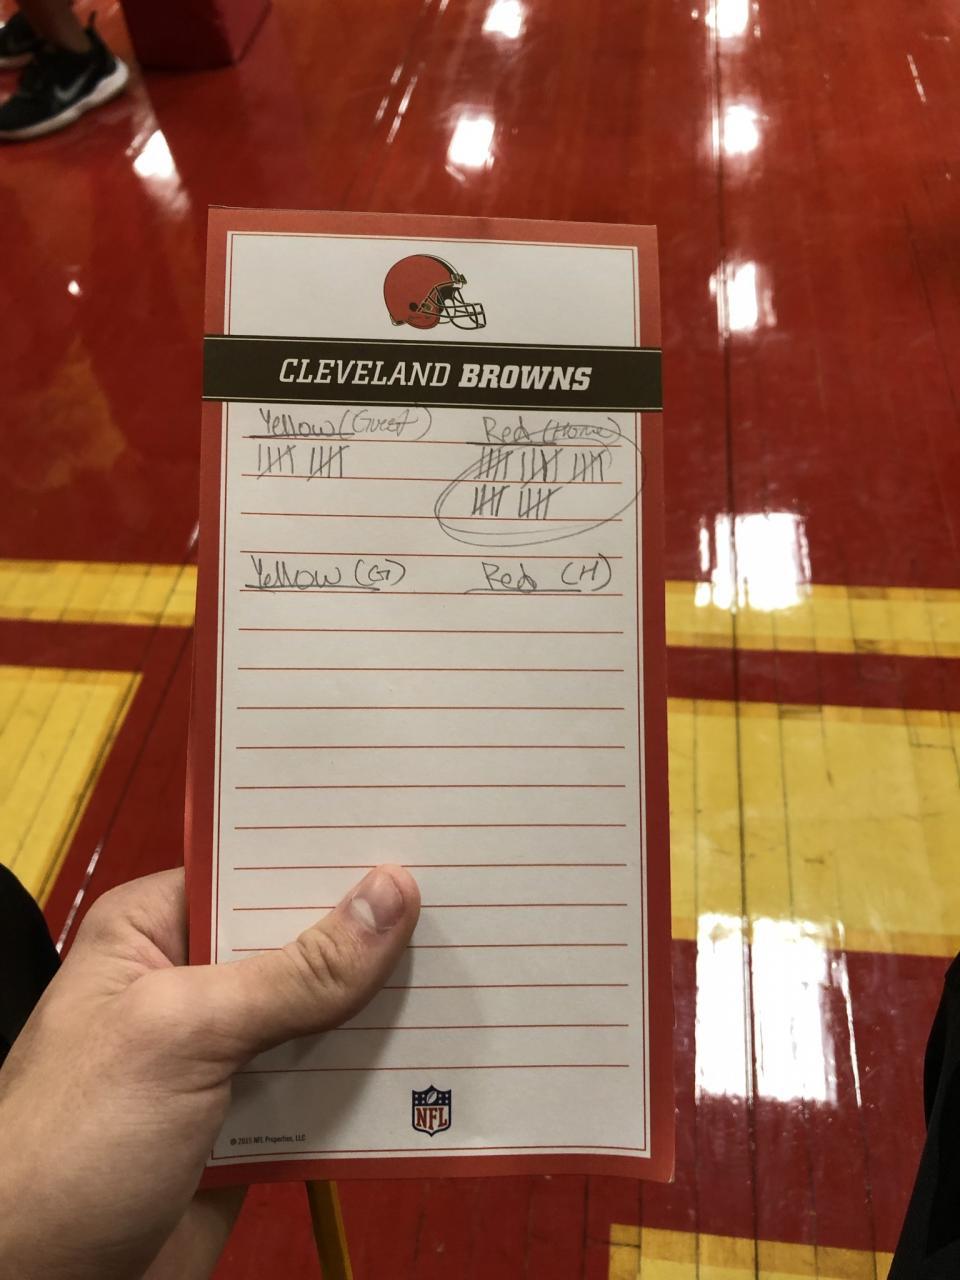 CLEVELAND BROWNS
Yellow (Guest) Red (Home)
Yellow (G) Red (H)
NFL
© 2015 NFL Properties, LLC